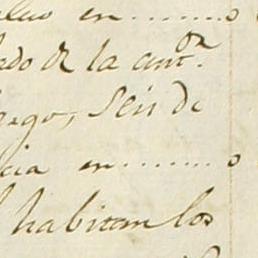 en........o
ado de la antor.
uego, Seis de
cia en........o
habitan los